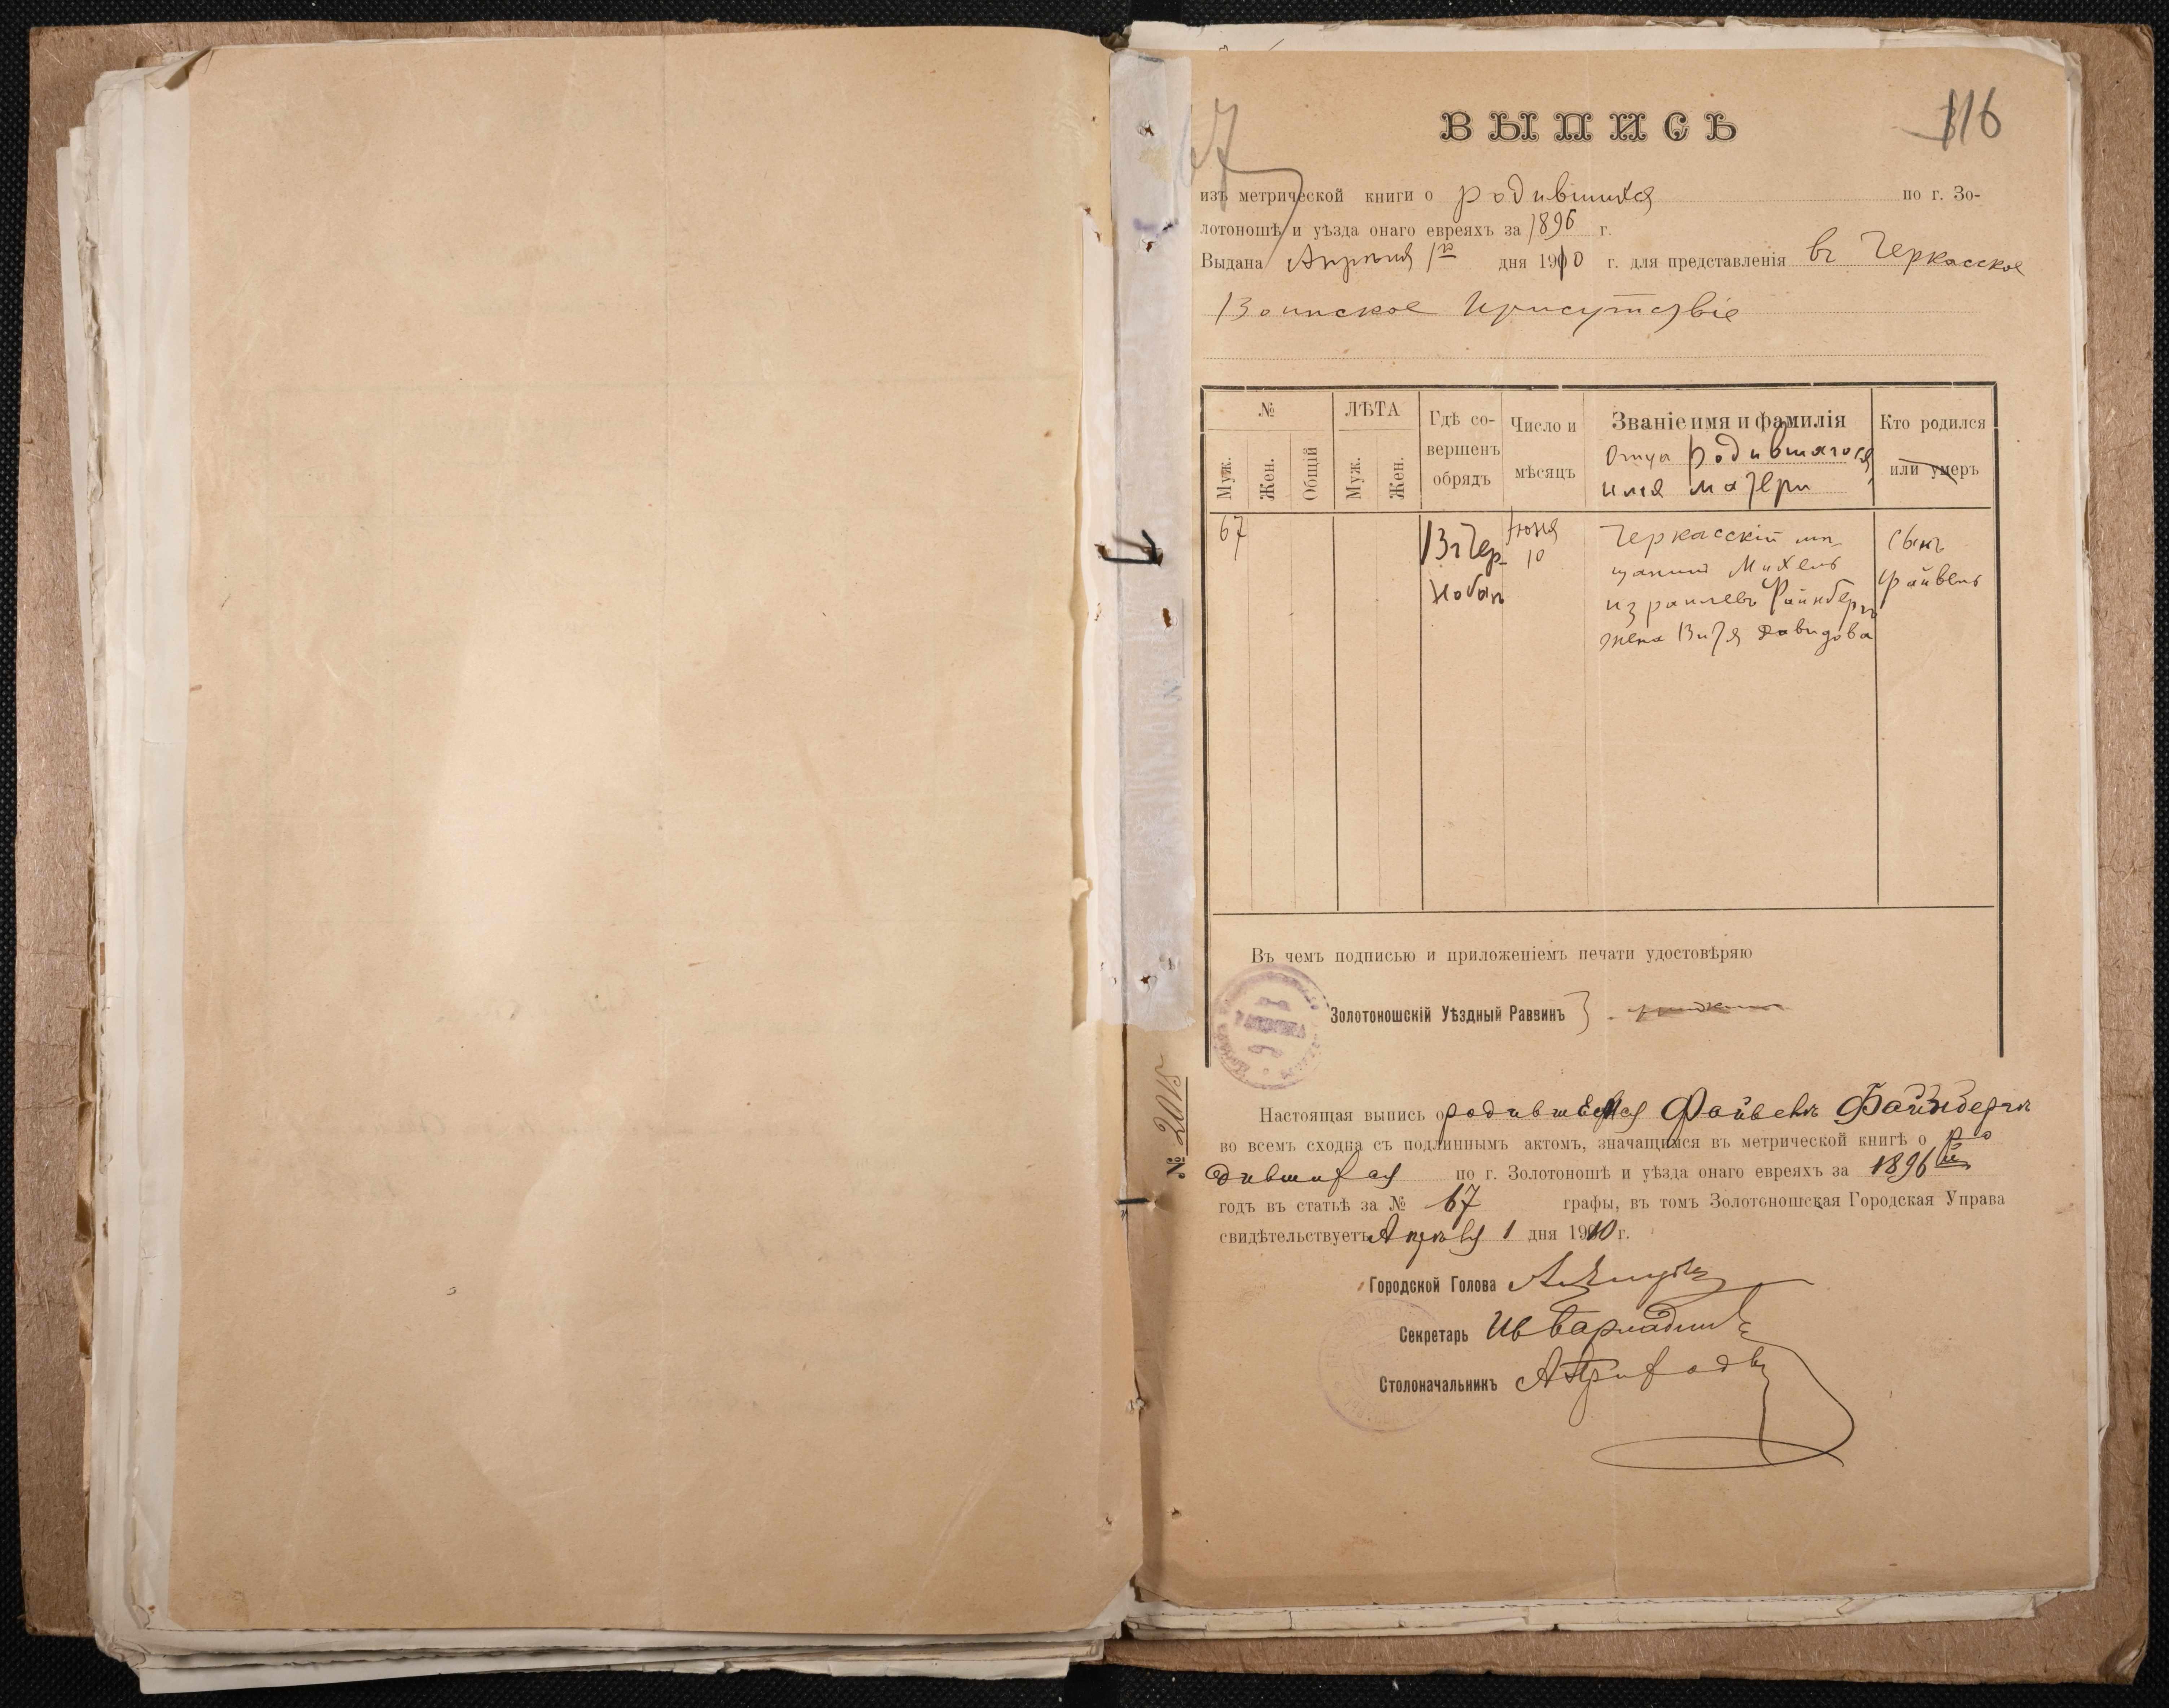 116
67
ВЫПИСЬ
изъ метрической книги о родившихся по г. Зо-
лотоношѣ и уѣзда онаго евреяхъ за 1896 г.
Выдана Апрѣля 1го дня 1910 г. для представленія въ Черкасское
Воинское Присутствіе
№ ЛѢТА Гдѣ со- Число и Званіе имя и фамилія Кто родился
вершенъ отца родившагося
обрядъ мѣсяцъ имя матери или умеръ
Муж. Жен. Общій Муж. Жен.
67 Въ Чер- Іюня Черкасскій мѣ- сынъ
нобаѣ 10 щанинъ Михель Файвель
израилевъ Файнбергъ
жена Витя Давидова
Въ чемъ подписью и приложеніемъ печати удостовѣряю
Золотоношскій Уѣздный Раввинъ
№ 2015
Настоящая выпись о родившемся Файвель Файнбергъ
во всемъ сходна съ подлиннымъ актомъ, значащимся въ метрической книгѣ о ро
дившихся по г. Золотоношѣ и уѣзда онаго евреяхъ за 1896й
годъ въ статьѣ за № 67 графы, въ томъ Золотоношская Городская Управа
свидѣтельствуетъ Апрѣля 1 дня 1910 г.
Городской Голова
Секретарь
Столоначальникъ